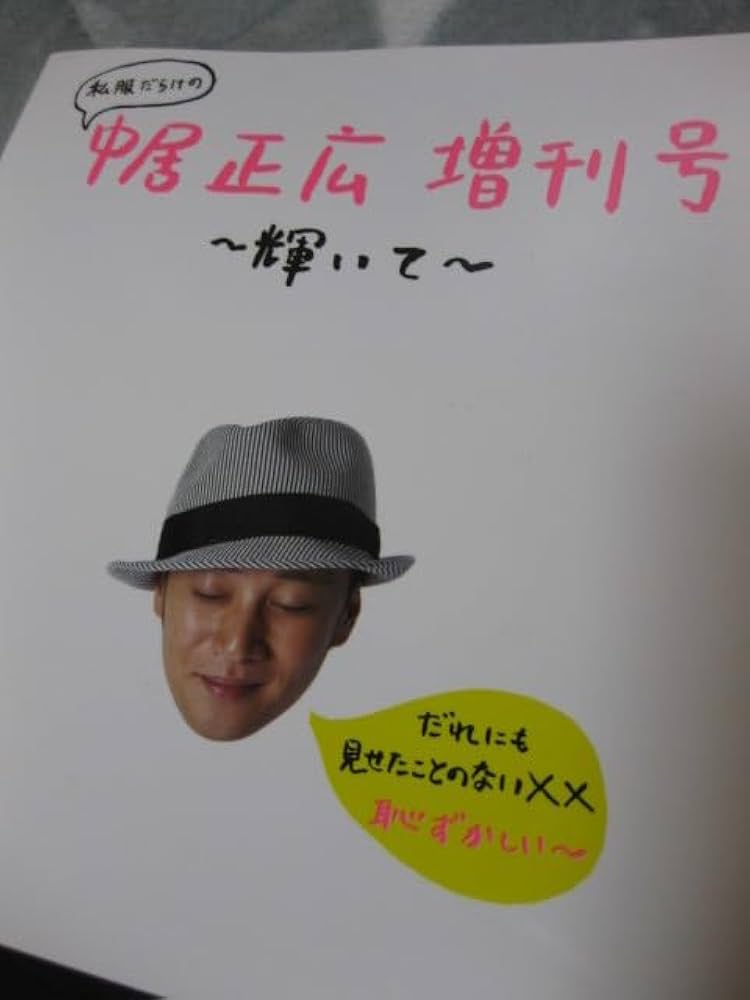 私服だらけの
中居正広 増刊号
～輝いて～
だれにも
見せたことのない××
恥ずかしい～